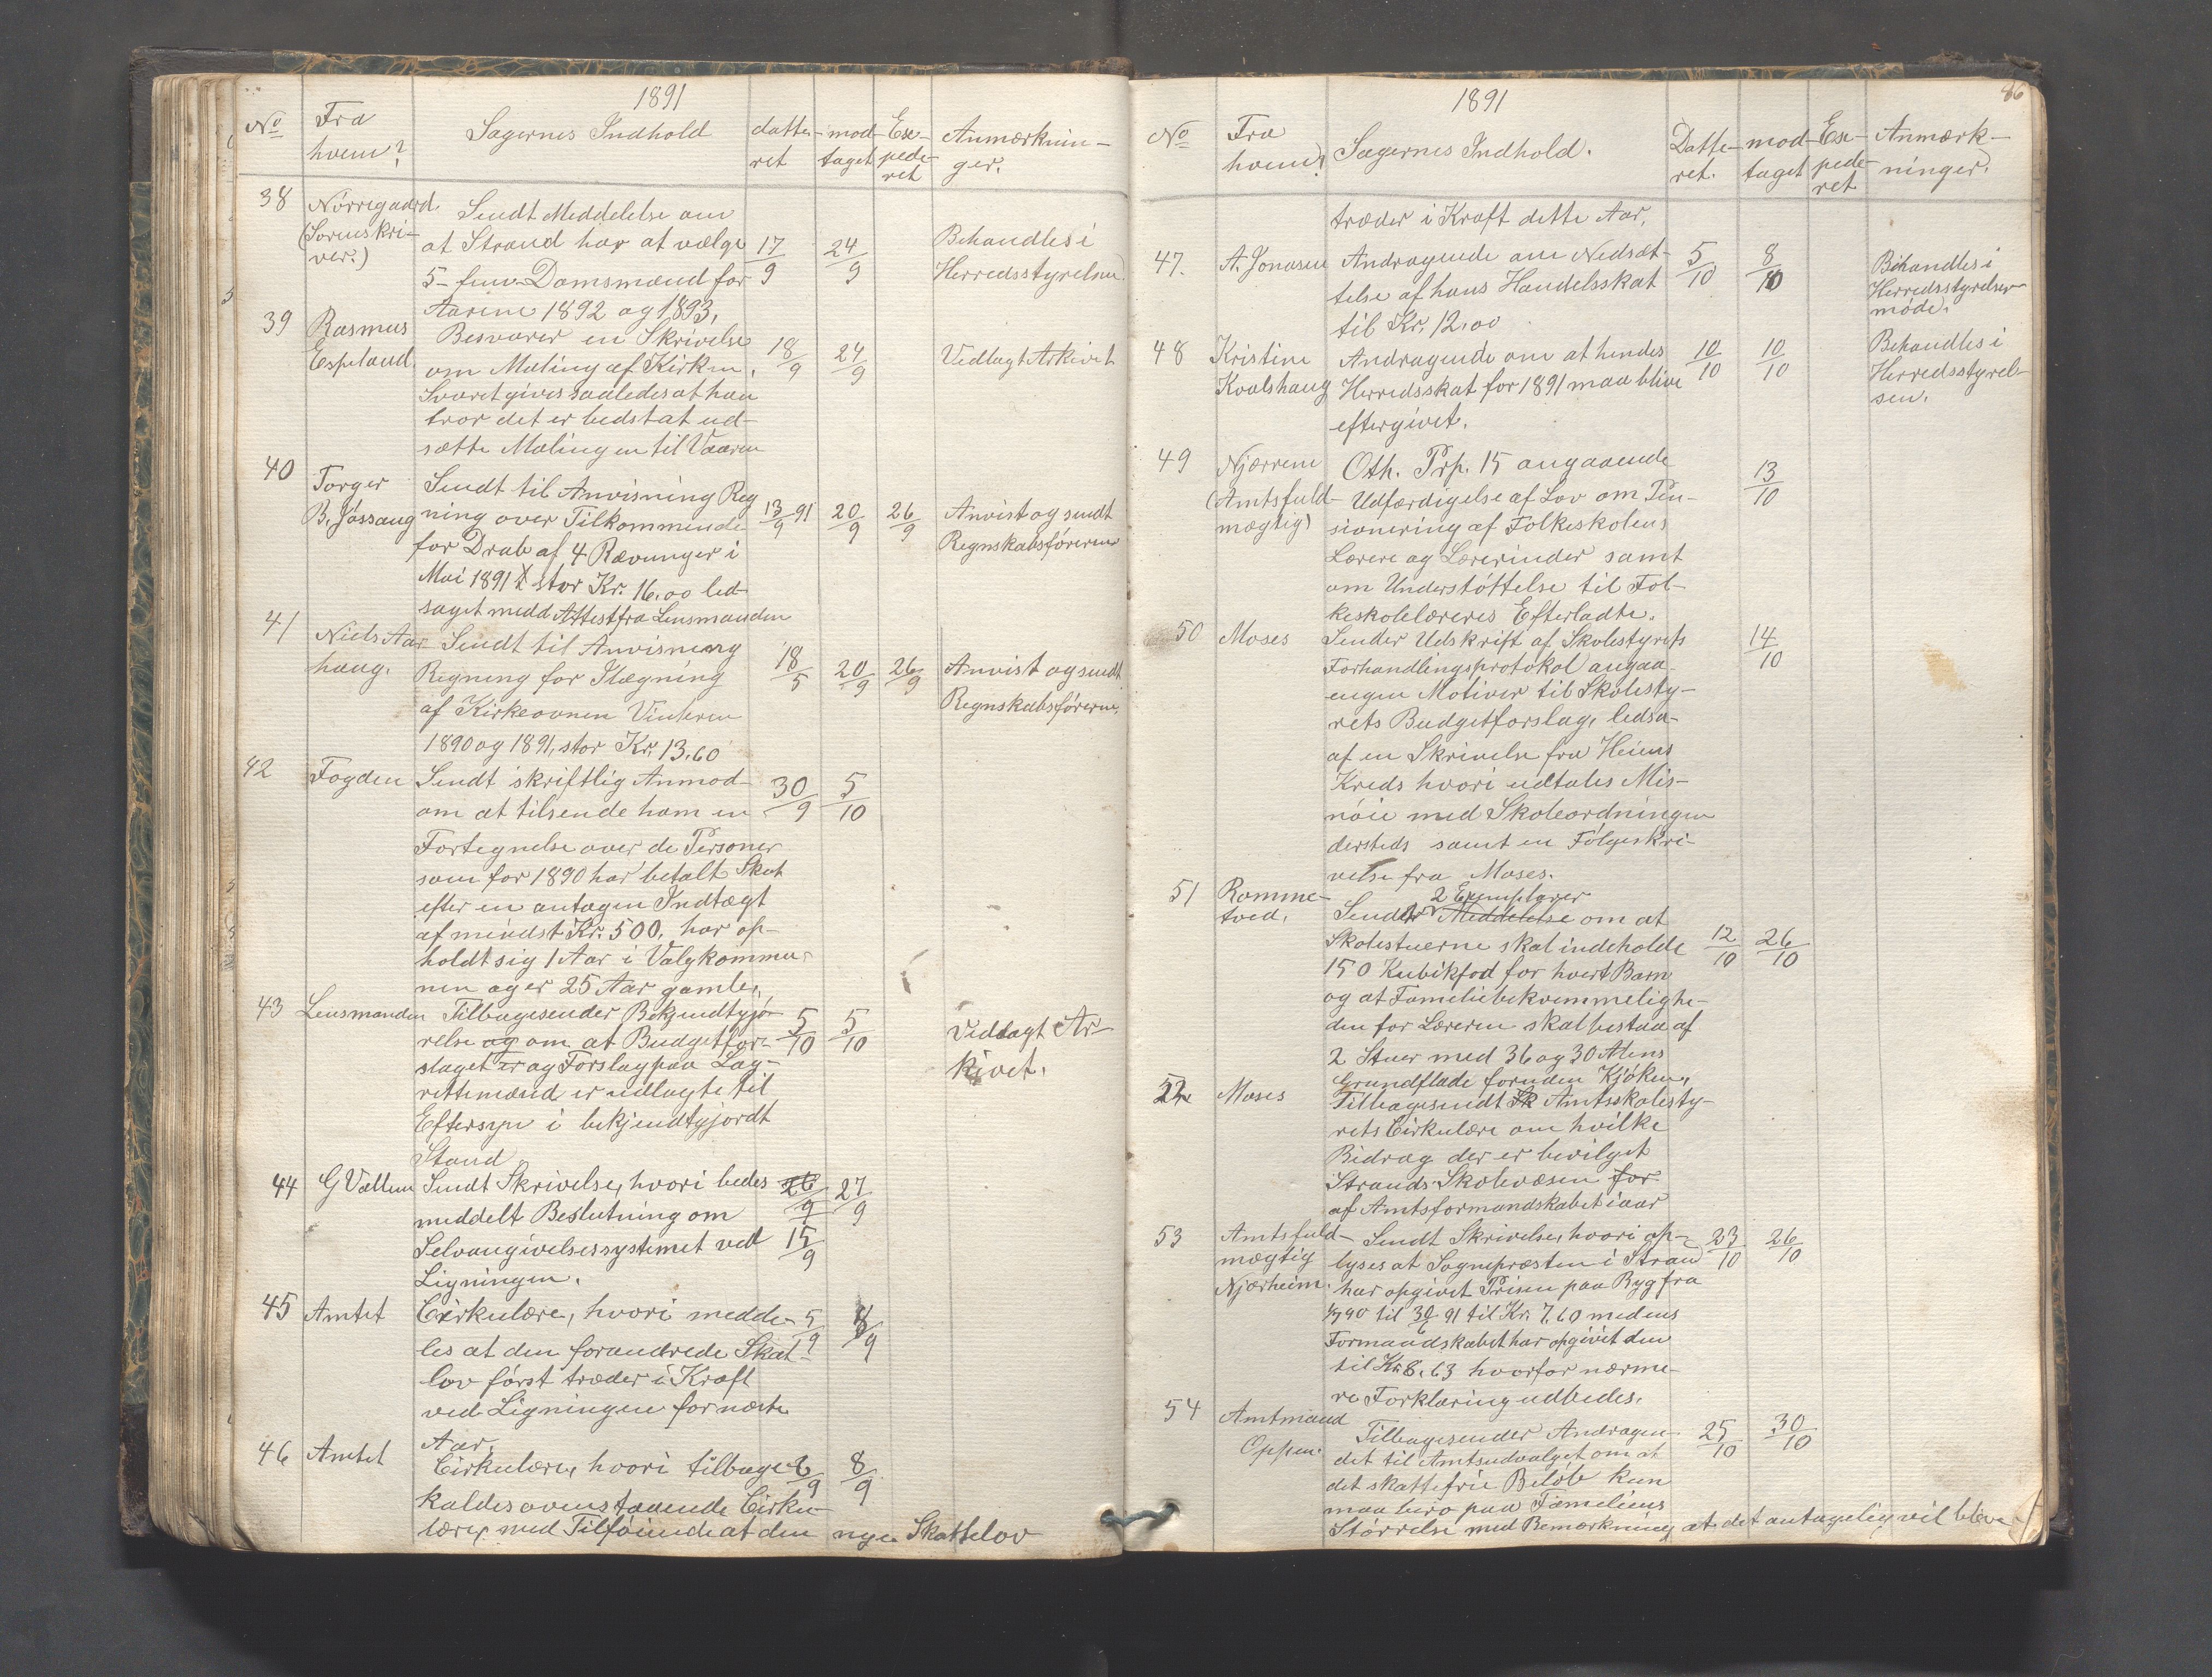 1891
No Fra hvem? Sagernes Indhold datteret modtaget Expederet Anmærkninger.
38 Nørregaard (Sorenskriver.)
Sendt Meddelelse om
at Strand har at vælge 17/9 24/9 Behandles i
5 - fem - Domsmænd for Herredsstyrelsen.
Aarene 1892 og 1893.
39 Rasmus Espeland.
Besvarer en Skrivelse
om Maling af Kirken. 18/9 24/9 Vedlagt Arkivet
Svaret gives saaledes at han
tror det er bedst at ud-
sætte Malingen til Vaaren
40 Torger B. Jøssang
Sendt til Anvisning Reg
ning over Tilkommende 13/9 91 20/9 26/9 Anvist og sendt
for Drab af 4 Rævunger i Regnskabsføreren
Mai 1891 stor Kr. 16.00 led-
saget medd Attest fra Lensmanden
41 Niels Aar
haug.
Sendt til Anvisning
Regning for Ilægning 18/5 20/9 26/9 Anvist og sendt
af Kirkeovnen Vinteren Regnskabsføreren.
1890 og 1891, stor Kr. 13.60
42 Fogden Sendt skriftlig Anmod-
om at tilsende ham en 30/9 5/10
Fortegnelse over de Personer
som for 1890 har betalt Skat
efter en antagen Indtægt
af mindst Kr. 500, har op-
holdt sig 1 Aar i Valgkommu-
nen og er 25 Aar gamle.
43 Lensmanden Tilbagesender Bekjendtgjø-
relse og om at Budgetfor- 5/10 5/10 Vedlagt Ar-
slaget er og Forslag paa Lag- kivet.
rettemænd er udlagte til
Eftersyn i bekjendtgjordt
Stand
44 G Vatlum Sendt Skrivelse, hvori bedes 26/9 27/9
meddelt Beslutning om
Selvangivelsessystemet ved 15/9
Ligningen.
45 Amtet Cirkulære, hvori medde- 5/9 8/9
les at den forandrede Skat-
lov først træder i Kraft
ved Ligningen for næste
Aar.
46 Amtet Cirkulære, hvori tilbage- 8/9 8/9
kaldes ovenstaaende Cirku-
lære, med Tilføiende at den nye Skattelov
86
1891
No Fra hvem? Sagernes Indhold. Datteret. modtaget Expederet Anmærkninger.
træder i Kraft dette Aar.
47. A. Jonasen Andragende om Nedsæt- 5/10 8/10 Behandles i
telse af hans Handelsskat Herredsstyrelses-
til Kr. 12.00 møde.
48 Kristine Andragende om at hendes 10/10 10/10 Behandles i
Kvalshaug Herredsskat for 1891 maa blive Herredsstyrel-
eftergivet. sen.
49 Njærrem Oth. Prp. 15 angaaende 13/10
(Amtsfuld- Udfærdigelse af Lov om Pen-
mægtig) sionering af Folkeskolens
Lærere og Lærerinder samt
om Understøttelse til Fol-
keskolelæreres Efterladte.
50 Moses Sender Udskrift af Skolestyrets 14/10
Forhandlingsprotokol angaa-
engen Motiver til Skolesty-
rets Budgetforslag, ledsa-
af en Skrivelse fra Heims
Kreds hvori udtales Mis-
nøie med Skoleordningen
dersteds samt en Følgeskri-
velse fra Moses.
51 Romme- 2 Exemplarer
tved. Sender Meddelelse om at
Skolestuerne skal indeholde 12/10 26/10
150 Kubikfod for hvert Barn
og at Familiebekvemmelighe-
den for Læreren skal bestaa af
2 Stuer med 36 og 30 Alens
Grundflade foruden Kjøken.
52 Moses Tilbagesendt Sk Amtsskolesty-
rets Cirkulære om hvilke
Bidrag der er bevilget
Strands Skolevæsen for
af Amtsformandskabet iaar
53 Amtsfuld- Sendt Skrivelse, hvori op- 23/10 26/10
mægtig lyses at Sognepræsten i Strand
Njærheim. har opgivet Prisen paa Byg fra
1/7 90 til 30/6 91 til Kr. 7.60 medens
Formandskabet har opgivet den
til Kr 8.63 hvorfor nærme-
re Forklaring udbedes.
54 Amtmand
Oppen. Tilbagesender Andragen- 25/10 30/10
det til Amtsudvalget om at
det skattefrie Beløb kun
maa bero paa Fameliens
Størrelse med Bemærkning at det antagelig vil blive